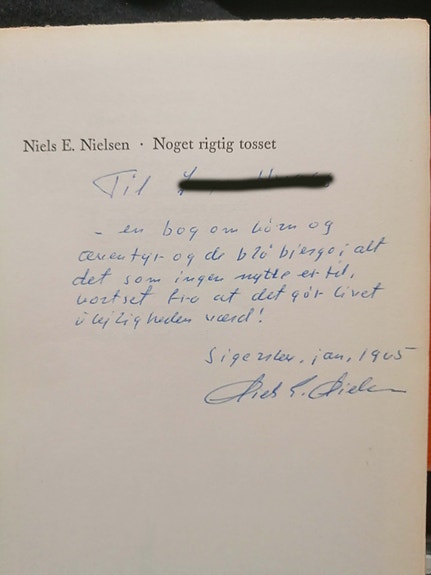 Niels E. Nielsen · Noget rigtig tosset
Til
- en bog om børn og
eventyr og de blå bjerge, alt
det som ingen nytte er til,
bortset fra at det gør livet
ulejligheden værd!
Sigerslev, jan, 1965
Niels E. Nielsen